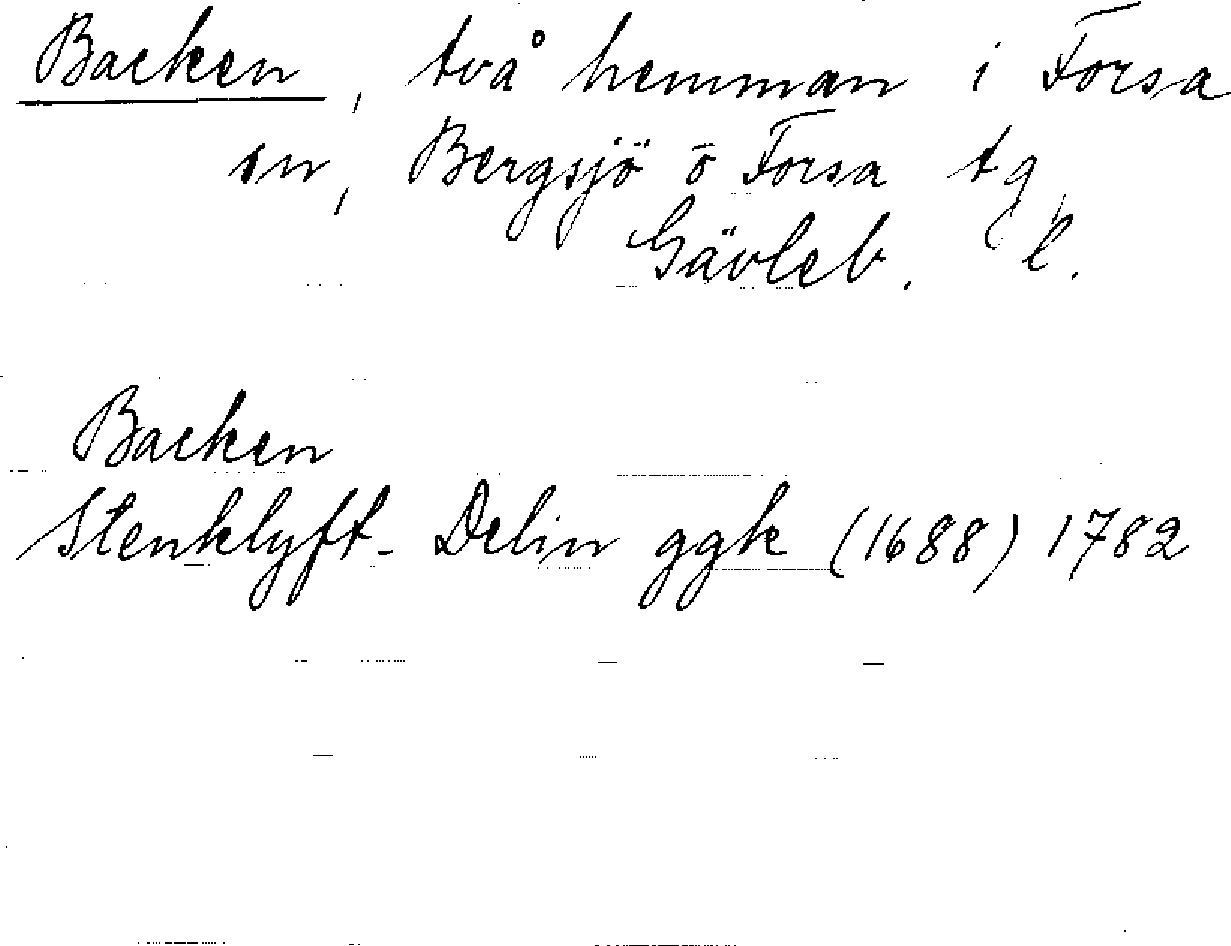 Backen, två hemman i Forsa
sn, Bergsjö o Forsa tg,
Gävleb. l.
Backen
Stenklyft- Delin ggk (1688) 1782